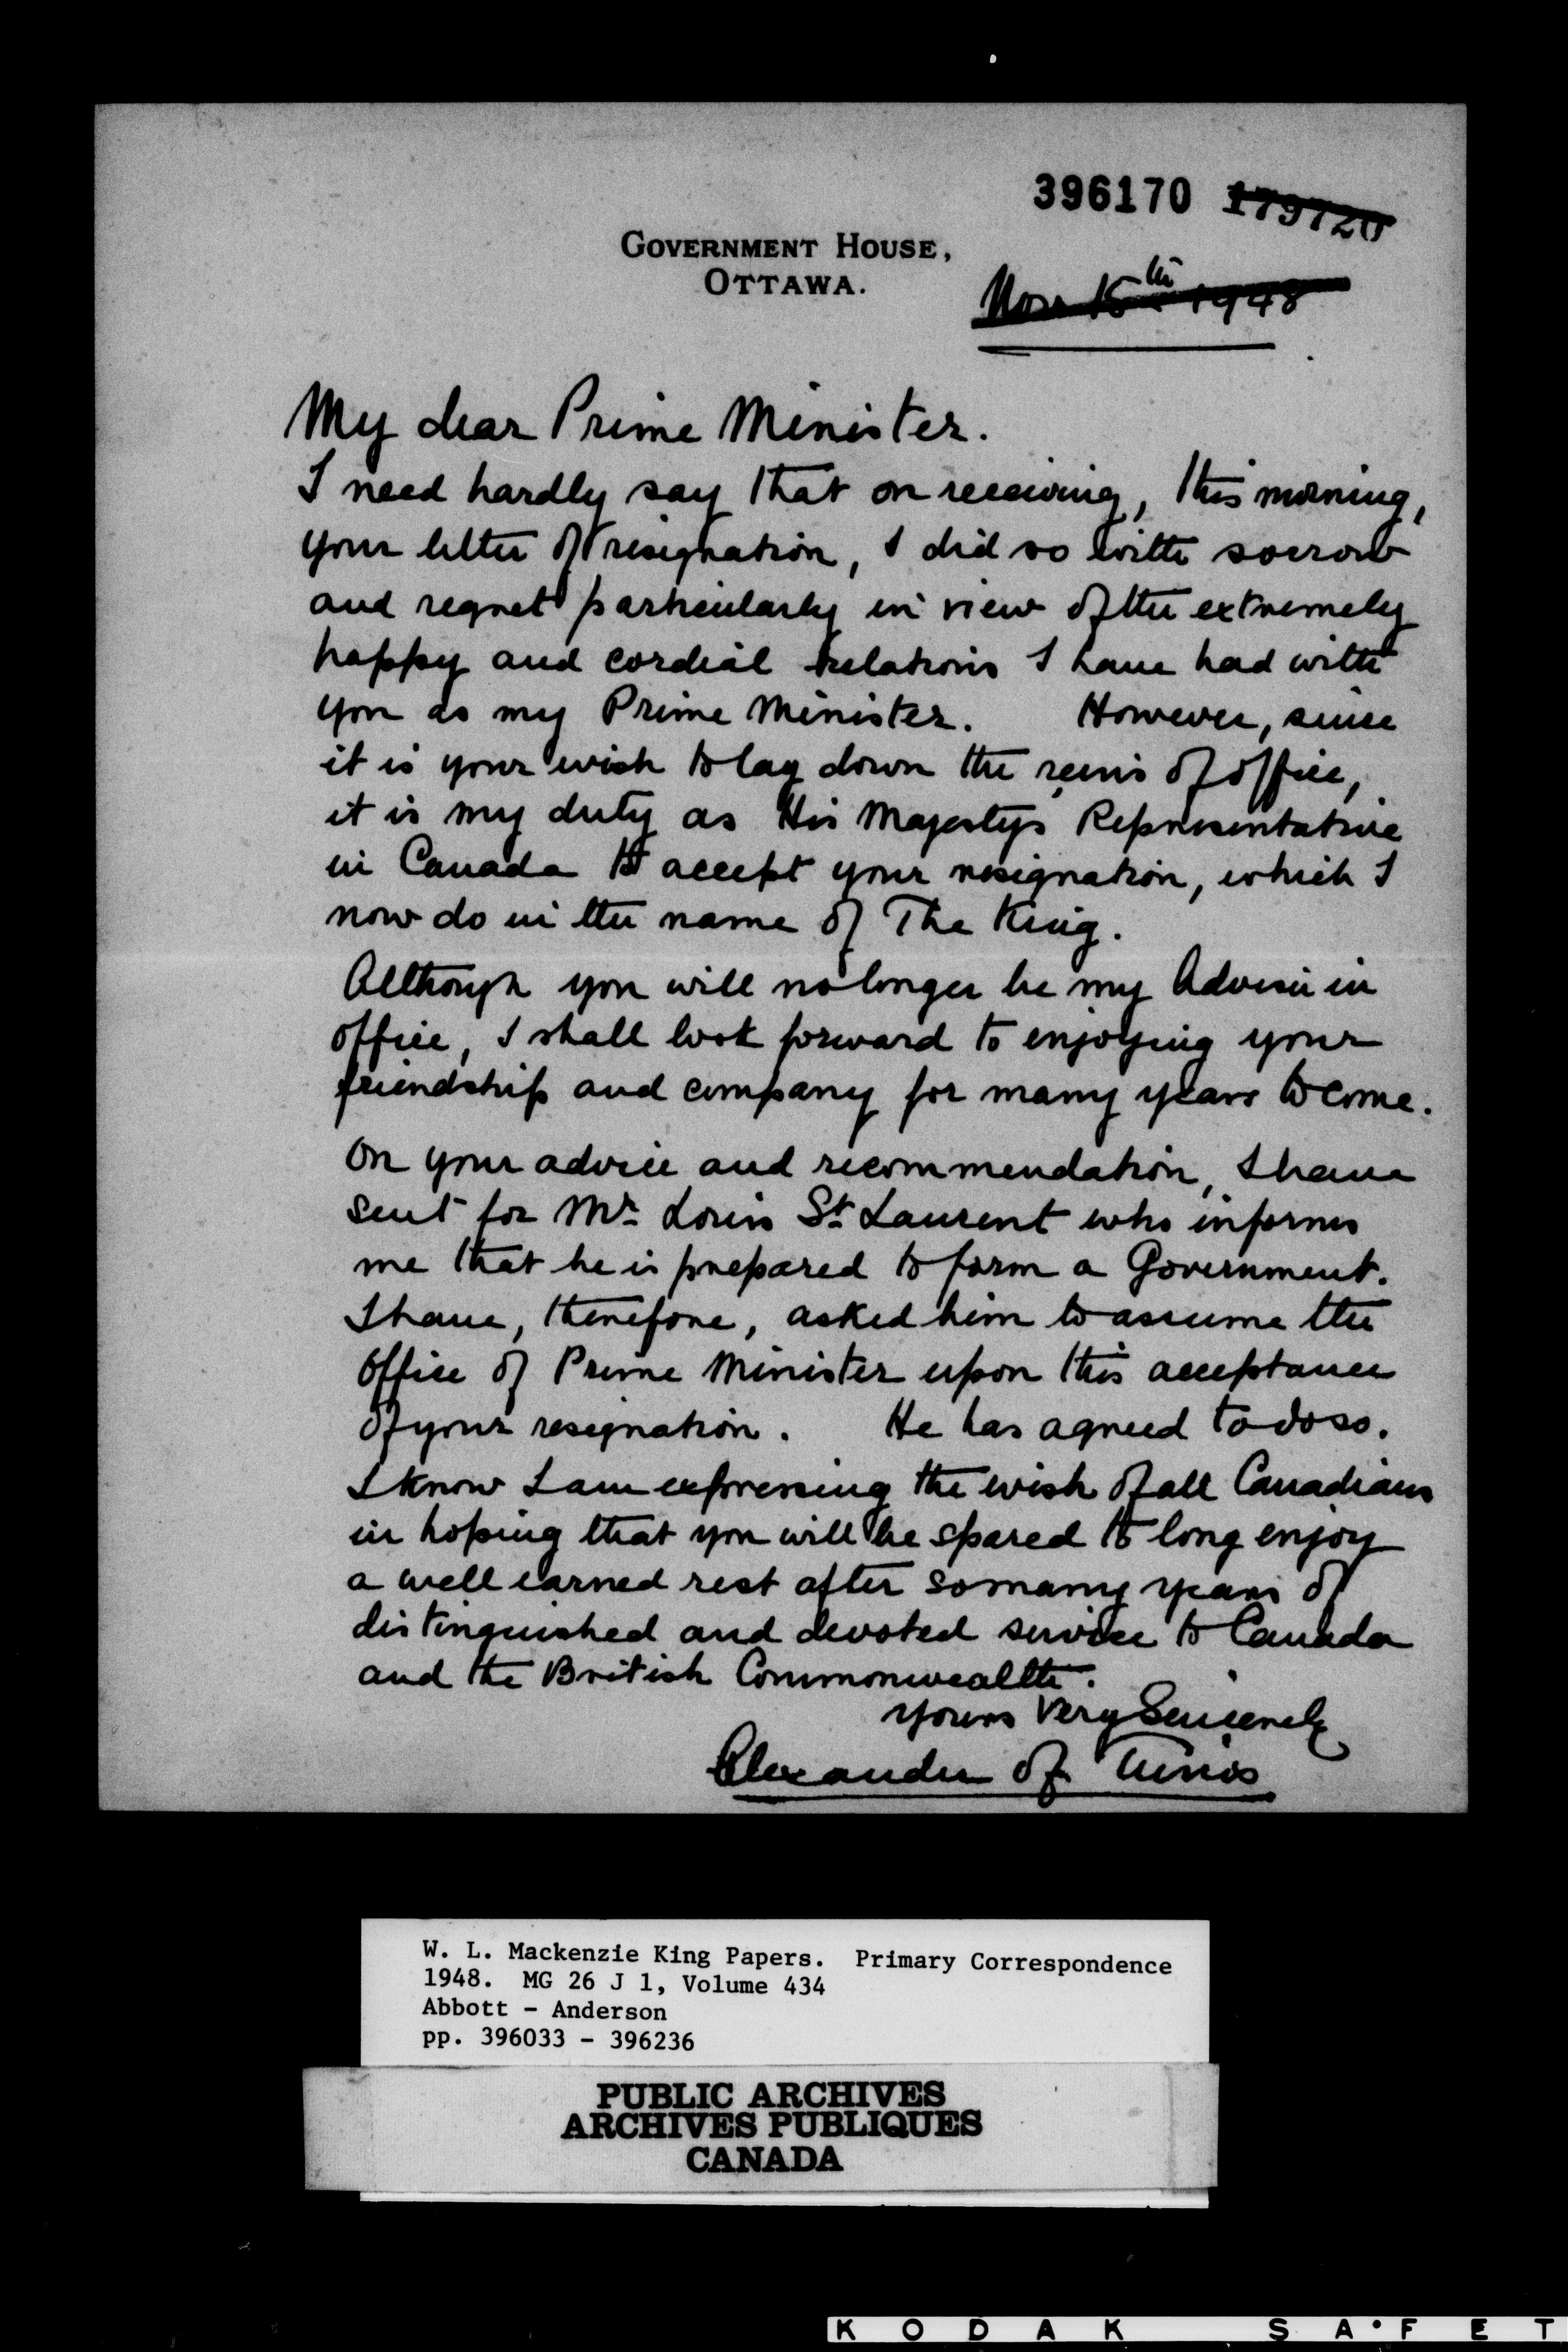 396170 179720
GOVERNMENT HOUSE,
OTTAWA.
Nov 15th 1948
My dear Prime Minister.
I need hardly say that on receiving, this morning,
your letter of resignation, I did so with sorrow
and regret particularly in view of the extremely
happy and cordial relations I have had with
you as my Prime Minister. However, since
it is your wish to lay down the reins of office,
it is my duty as His Majesty's Representative
in Canada to accept your resignation, which I
now do in the name of The King.
Although you will no longer be my Adviser in
office, I shall look forward to enjoying your
friendship and company for many years to come.
On your advice and recommendation, I have
sent for Mr. Louis St. Laurent who informs
me that he is prepared to form a Government.
I have, therefore, asked him to assume the
office of Prime Minister upon this acceptance
of your resignation. He has agreed to do so.
I know I am expressing the wish of all Canadians
in hoping that you will be spared to long enjoy
a well earned rest after so many years of
distinguished and devoted service to Canada
and the British Commonwealth.
Yours Very Sincerely
Alexander of Tunis
W. L. Mackenzie King Papers. Primary Correspondence
1948. MG 26 J 1, Volume 434
Abbott - Anderson
pp. 396033 - 396236
PUBLIC ARCHIVES
ARCHIVES PUBLIQUES
CANADA
KODAK SA•FET